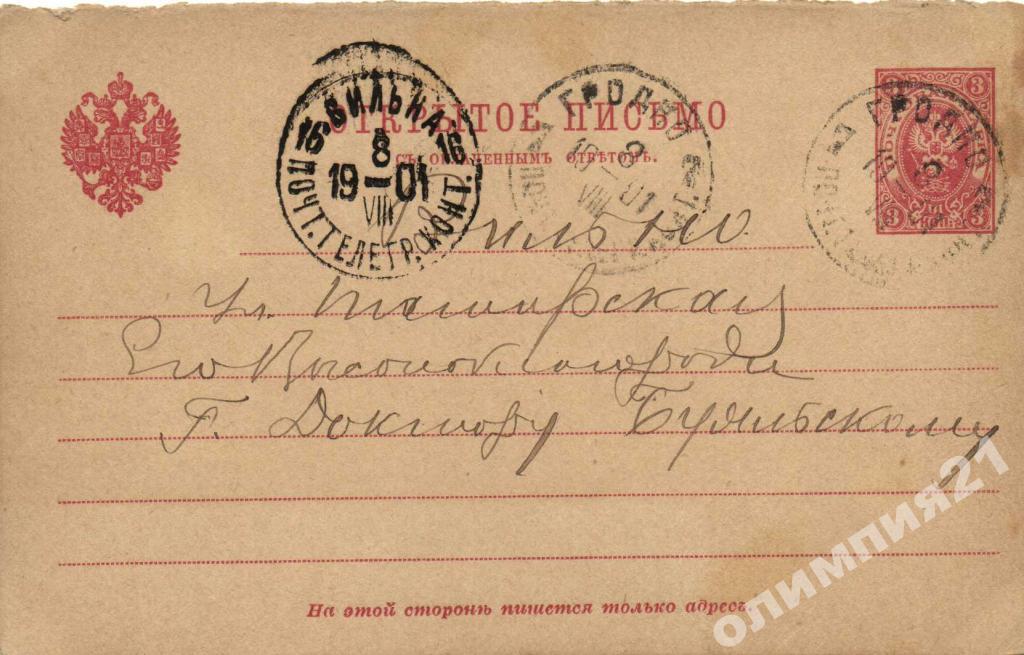 ОТКРЫТОЕ ПИСЬМО
съ оплаченнымъ отвѣтомъ.
ВИЛЬНА
16 8 16
19–01
VIII
ПОЧТ. ТЕЛЕГР. КОНТ.
ГРОДНО
8
19–01
VIII
ГРОДНО
3 3
3
Вильно.
Его Высокоблагородію
Г. Доктору
На этой сторонѣ пишется только адресъ.
олимпия21